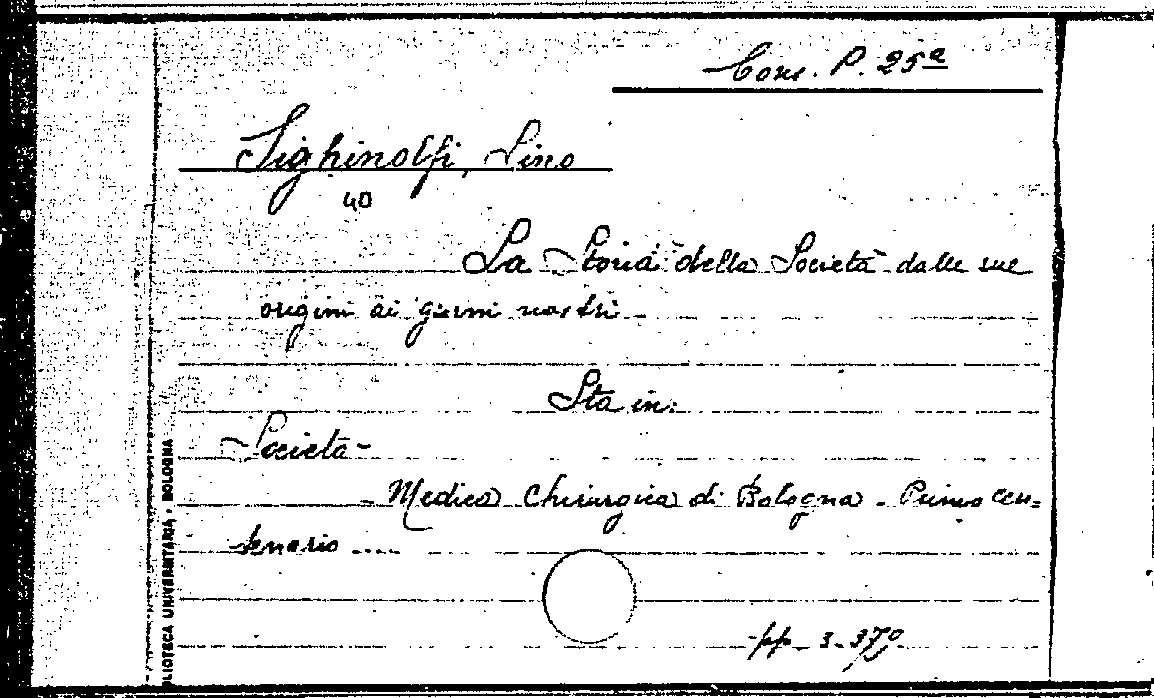 Cons. P. 25ª
Sighinolfi, Lino
40
La Storia della Società dalle sue
origini ai giorni nostri -
Sta in:
Società -
- Medica Chirurgica di Bologna - Primo cen-
tenario ....
pp. 3-379.
BLIOTECA UNIVERSITARIA - BOLOGNA